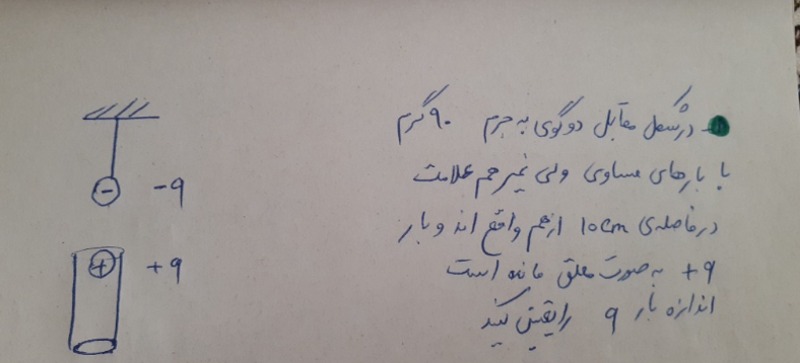 در شکل مقابل دو گوی به جرم ۹۰ گرم
با بارهای مساوی ولی غیر هم علامت
در فاصله‌ی 10cm از هم واقع اند و بار
+q به صورت معلق مانده است
اندازه بار q را تعیین کنید
-
-q
+
+q